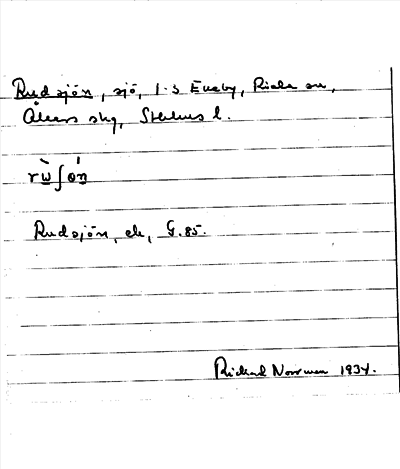 Rudsjön, sjö, i s Eneby, Riala sn,
Åkers skg, Sthlms l.
rẁʃǿn
Rudsjön, ek, G. 85.
Richard Norrman 1934.